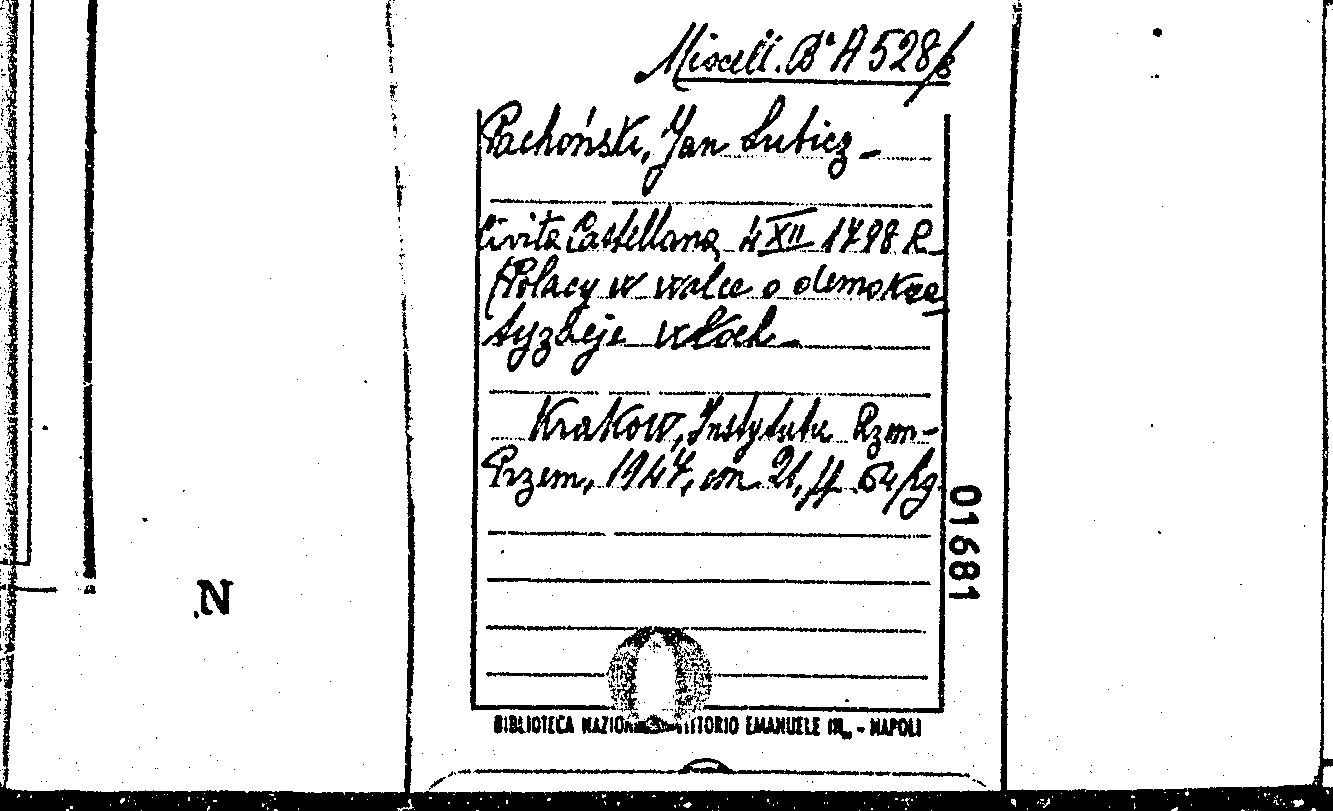 Miscell. Bª A 528/8
Pachoński, Jan Lubicz -
Civita Castellana 4 XII 1798 R.
(Polacy w walce o demokra
tyzacje Włoch -
Krakow, Instytutu Rzem-
Przem, 1947, cm 21, ff. 64/Rg.
01681
N
BIBLIOTECA NAZIONALE VITTORIO EMANUELE III„ - NAPOLI